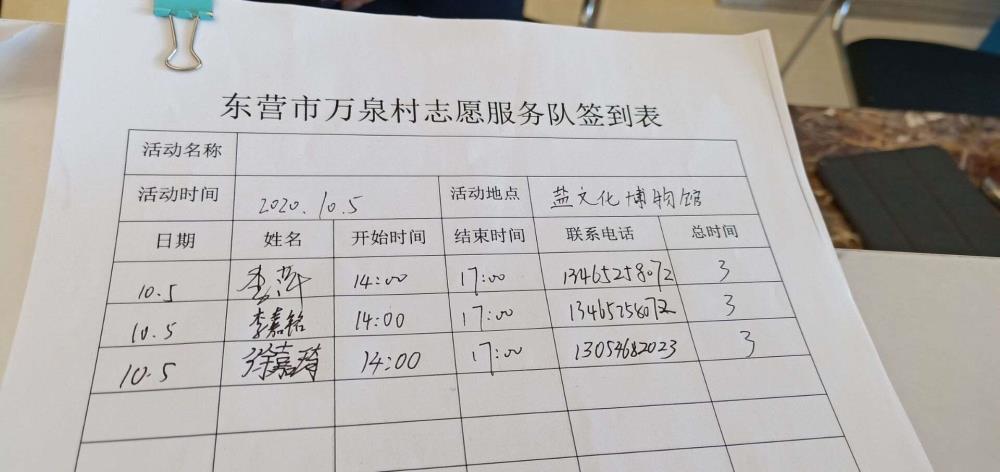 东营市万泉村志愿服务队签到表
活动名称
活动时间 2020.10.5 活动地点 盐文化博物馆
日期 姓名 开始时间 结束时间 联系电话 总时间
10.5 李萍 14:00 17:00 13465258072 3
10.5 李嘉铭 14:00 17:00 13465258072 3
10.5 徐嘉琦 14:00 17:00 13054682023 3